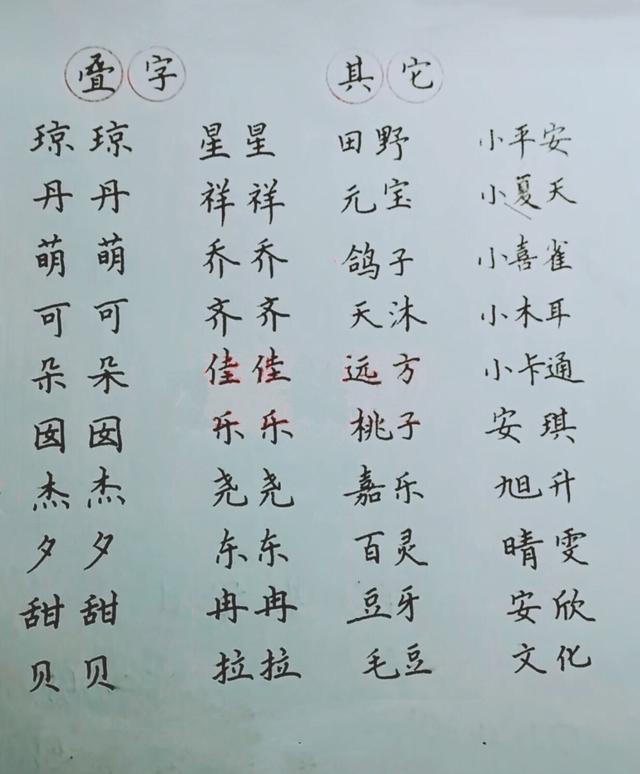 叠字 其它
琼琼 星星 田野 小平安
丹丹 祥祥 元宝 小夏天
萌萌 乔乔 鸽子 小喜雀
可可 齐齐 天沐 小木耳
朵朵 佳佳 远方 小卡通
囡囡 乐乐 桃子 安琪
杰杰 尧尧 嘉乐 旭升
夕夕 东东 百灵 晴雯
甜甜 冉冉 豆牙 安欣
贝贝 拉拉 毛豆 文化